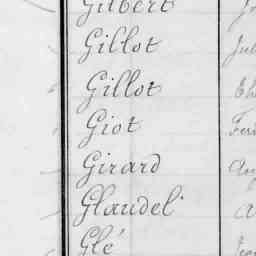 Gilbert
Gillot
Gillot
Giot
Girard
Glaudel
Glé